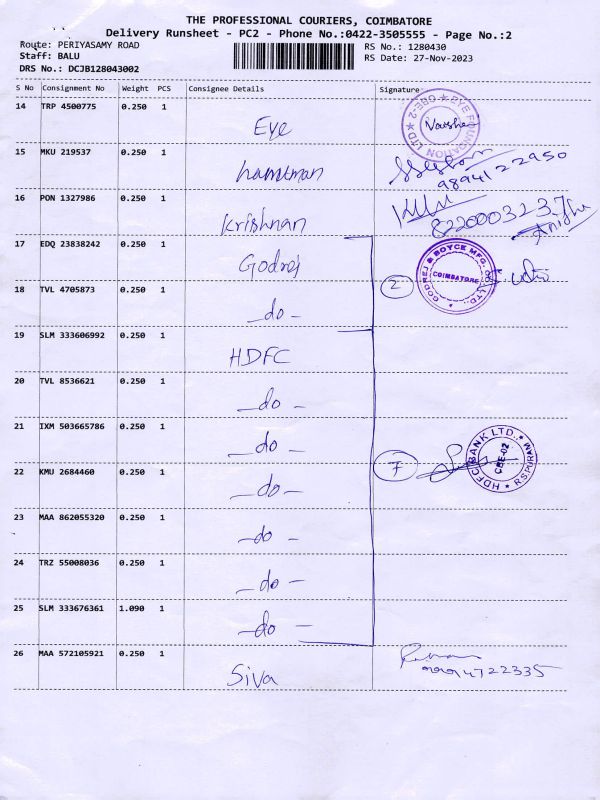 THE PROFESSIONAL COURIERS, COIMBATORE
Delivery Runsheet - PC2 - Phone No.:0422-3505555 - Page No.:2
Route: PERIYASAMY ROAD
RS No.: 1280430
Staff: BALU
RS Date: 27-Nov-2023
DRS No.: DCJB128043002
S No Consignment No Weight PCS Consignee Details Signature
14 TRP 4500775 0.250 1 Eye
15 MKU 219537 0.250 1 hanuman
9894122950
16 PON 1327986 0.250 1 Krishnan
8220003237
17 EDQ 23838242 0.250 1 Godrej
GODREJ & BOYCE MFG. CO. LTD.
COIMBATORE
2
18 TVL 4705873 0.250 1 -do-
19 SLM 333606992 0.250 1 HDFC
20 TVL 8536621 0.250 1 -do-
21 IXM 503665786 0.250 1 -do-
7
HDFC BANK LTD., R S PURAM
CBE-02
22 KMU 2684460 0.250 1 -do-
23 MAA 862055320 0.250 1 -do-
24 TRZ 55008036 0.250 1 -do-
25 SLM 333676361 1.090 1 -do-
26 MAA 572105921 0.250 1 Siva
9994722335